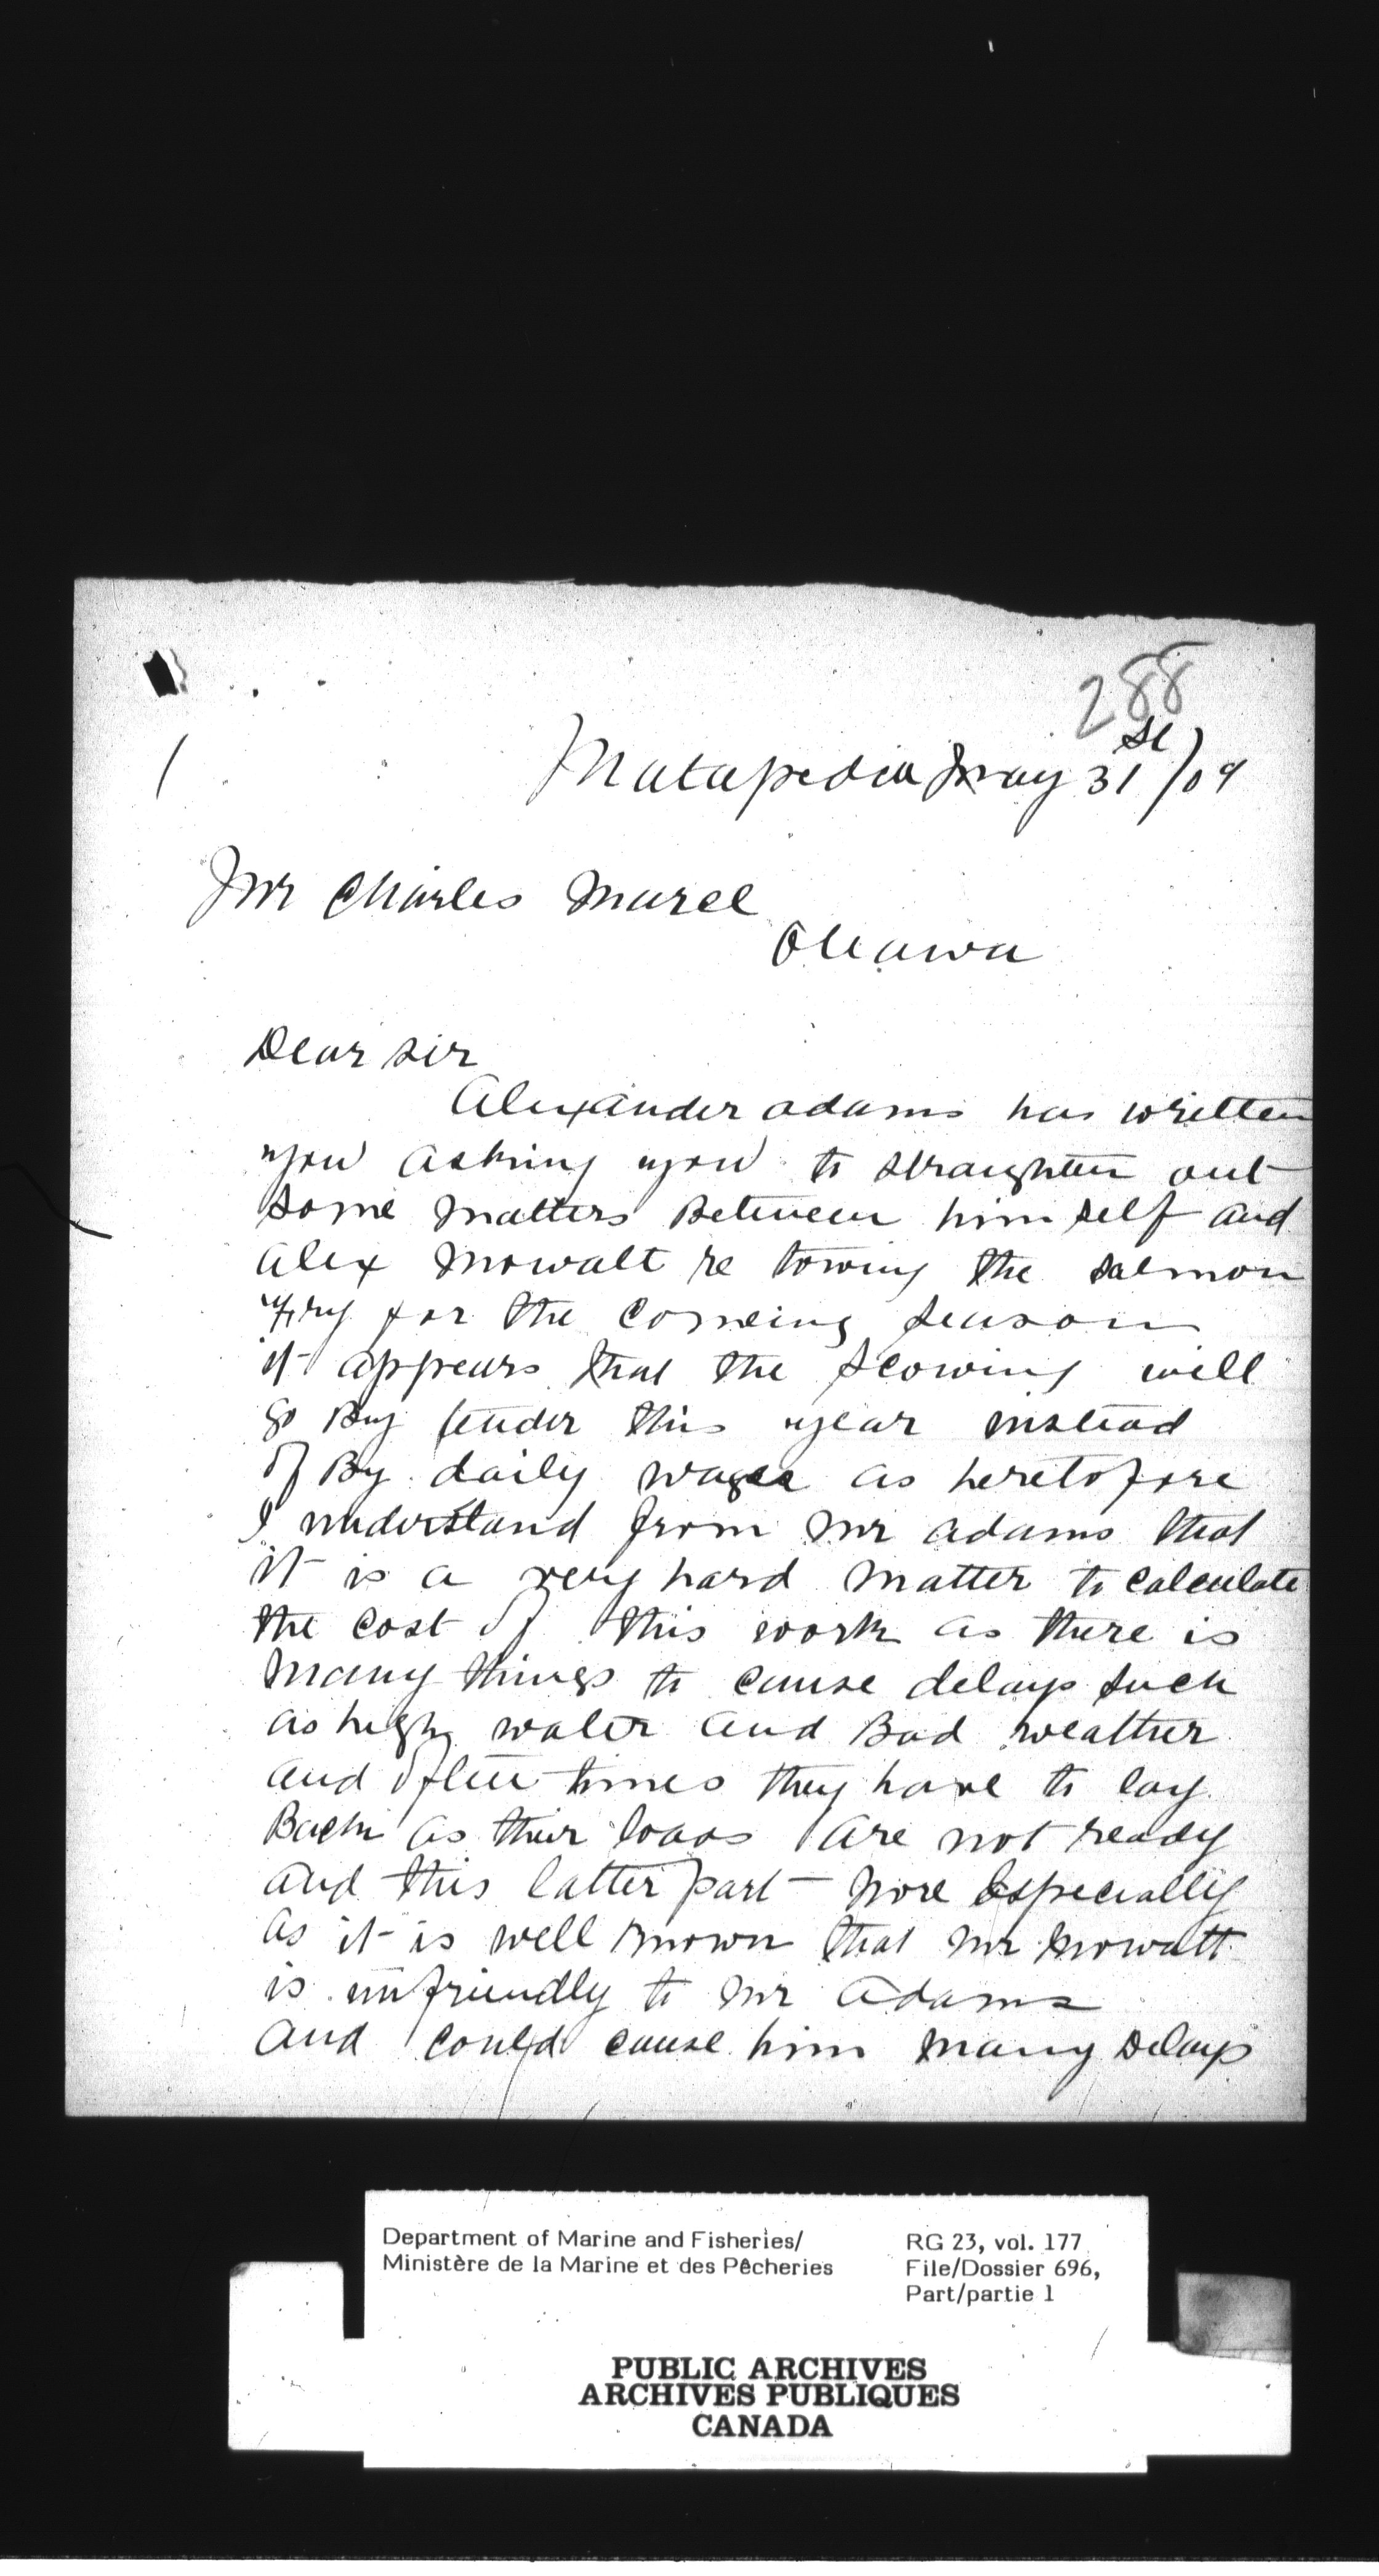 288
Matapedia May 31st/09
Mr Charles Marcel
Ottawa
Dear sir
Alexander adams has written
you asking you to straighten out
some matters Between himself and
alex Mowatt re towing the salmon
fry for the comeing season
it appears that the scowing will
go By tender this year instead
of By daily wages as heretofore
I understand from Mr adams that
it is a very hard matter to calculate
the cost of this work as there is
many things to cause delays such
as high water and Bad weather
and often times they have to lay
Back as their loads are not ready
and this latter part more Especially
as it is well known that Mr Mowatt
is unfriendly to Mr Adams
and could cause him many Delays
Department of Marine and Fisheries/
Ministère de la Marine et des Pêcheries
RG 23, vol. 177
File/Dossier 696,
Part/partie 1
PUBLIC ARCHIVES
ARCHIVES PUBLIQUES
CANADA